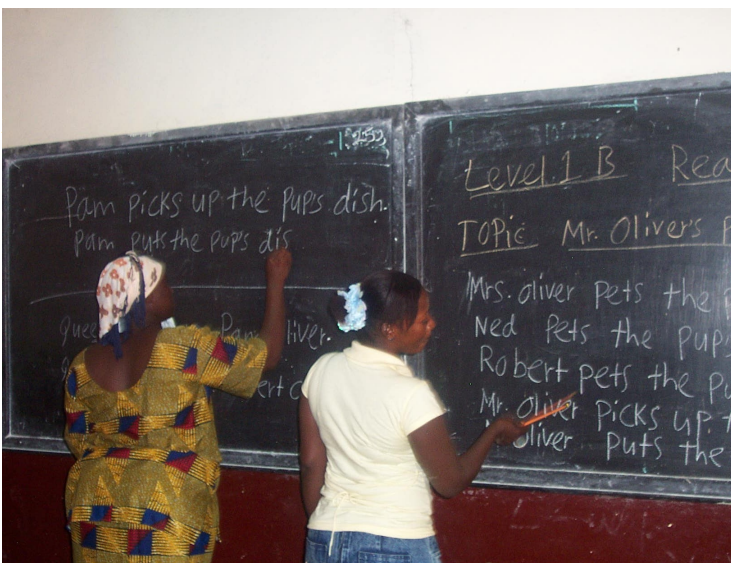 Pam picks up the pup's dish.
Pam puts the pup's dis
Pam liver.
Level 1 B Rea
TOPic Mr. Oliver's P
Mrs. oliver pets the
Ned Pets the pup's
Robert pets the pu
Mr. Oliver picks up t
Oliver puts the